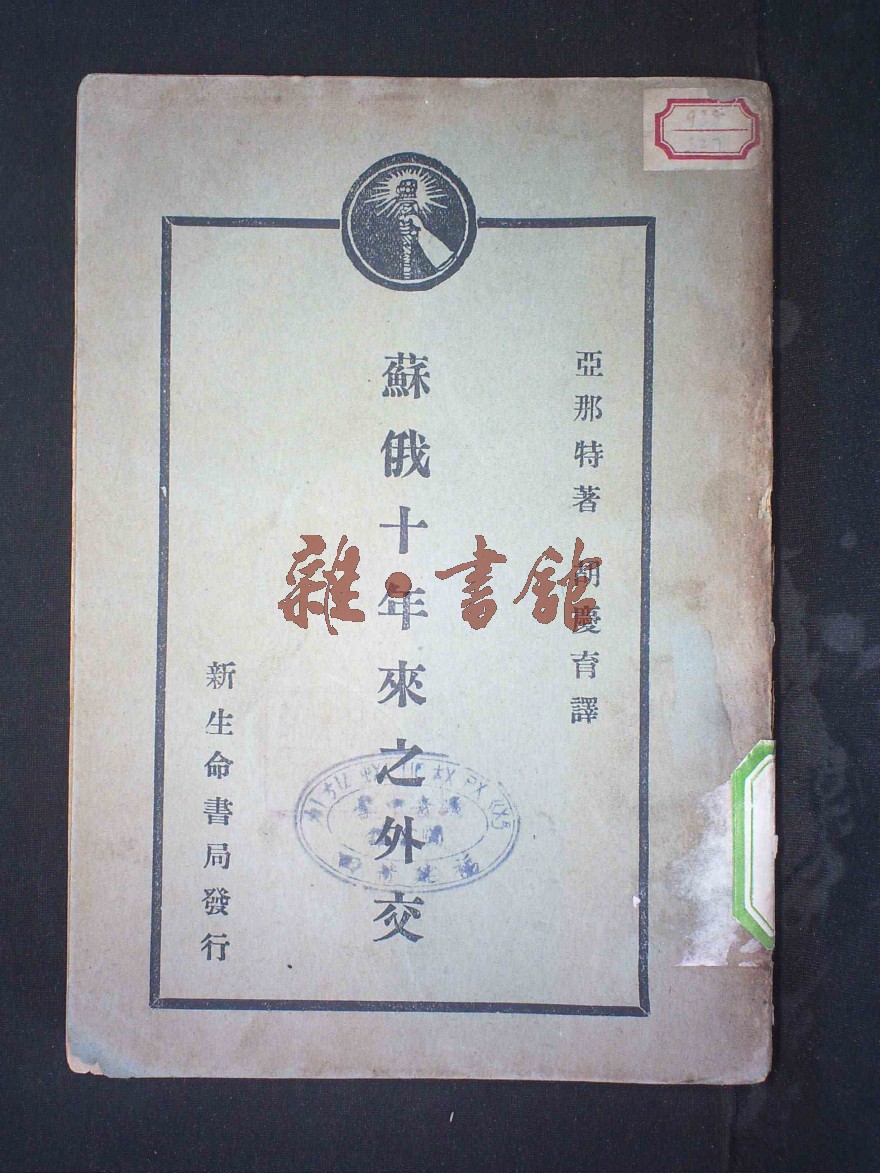 亞那特著 胡慶育譯
蘇俄十年來之外交
新生命書局發行
雜·書館